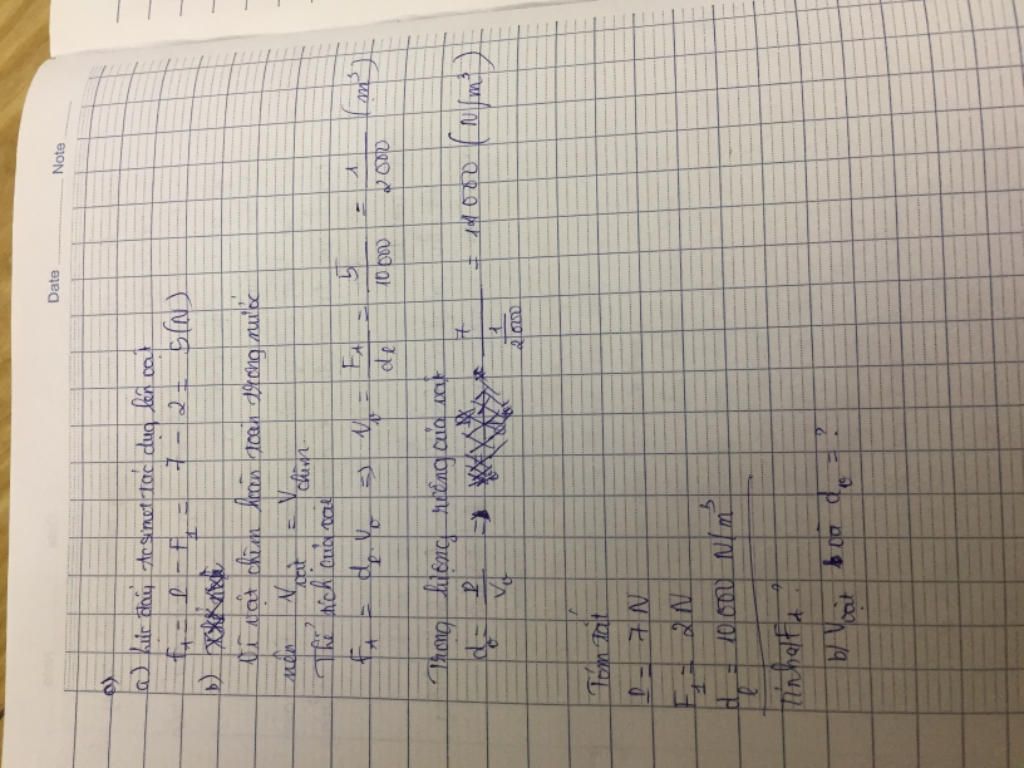 Date Note
a)
a) Lực đẩy Acsimet tác dụng lên vật
F_A = P - F_1 = 7 - 2 = 5 (N)
b)
Vì vật chìm hoàn toàn trong nước
nên V_vật = V_chìm
Thể tích của vật
F_A = d_l . V_v => V_v = F_A / d_l = 5 / 10 000 = 1 / 2000 (m³)
Trọng lượng riêng của vật
d_v = P / V_v = 7 / (1 / 2000) = 14 000 (N/m³)
Tóm tắt
P = 7 N
F_1 = 2 N
d_l = 10 000 N/m³
a) F_A ?
b) V_vật và d_v = ?